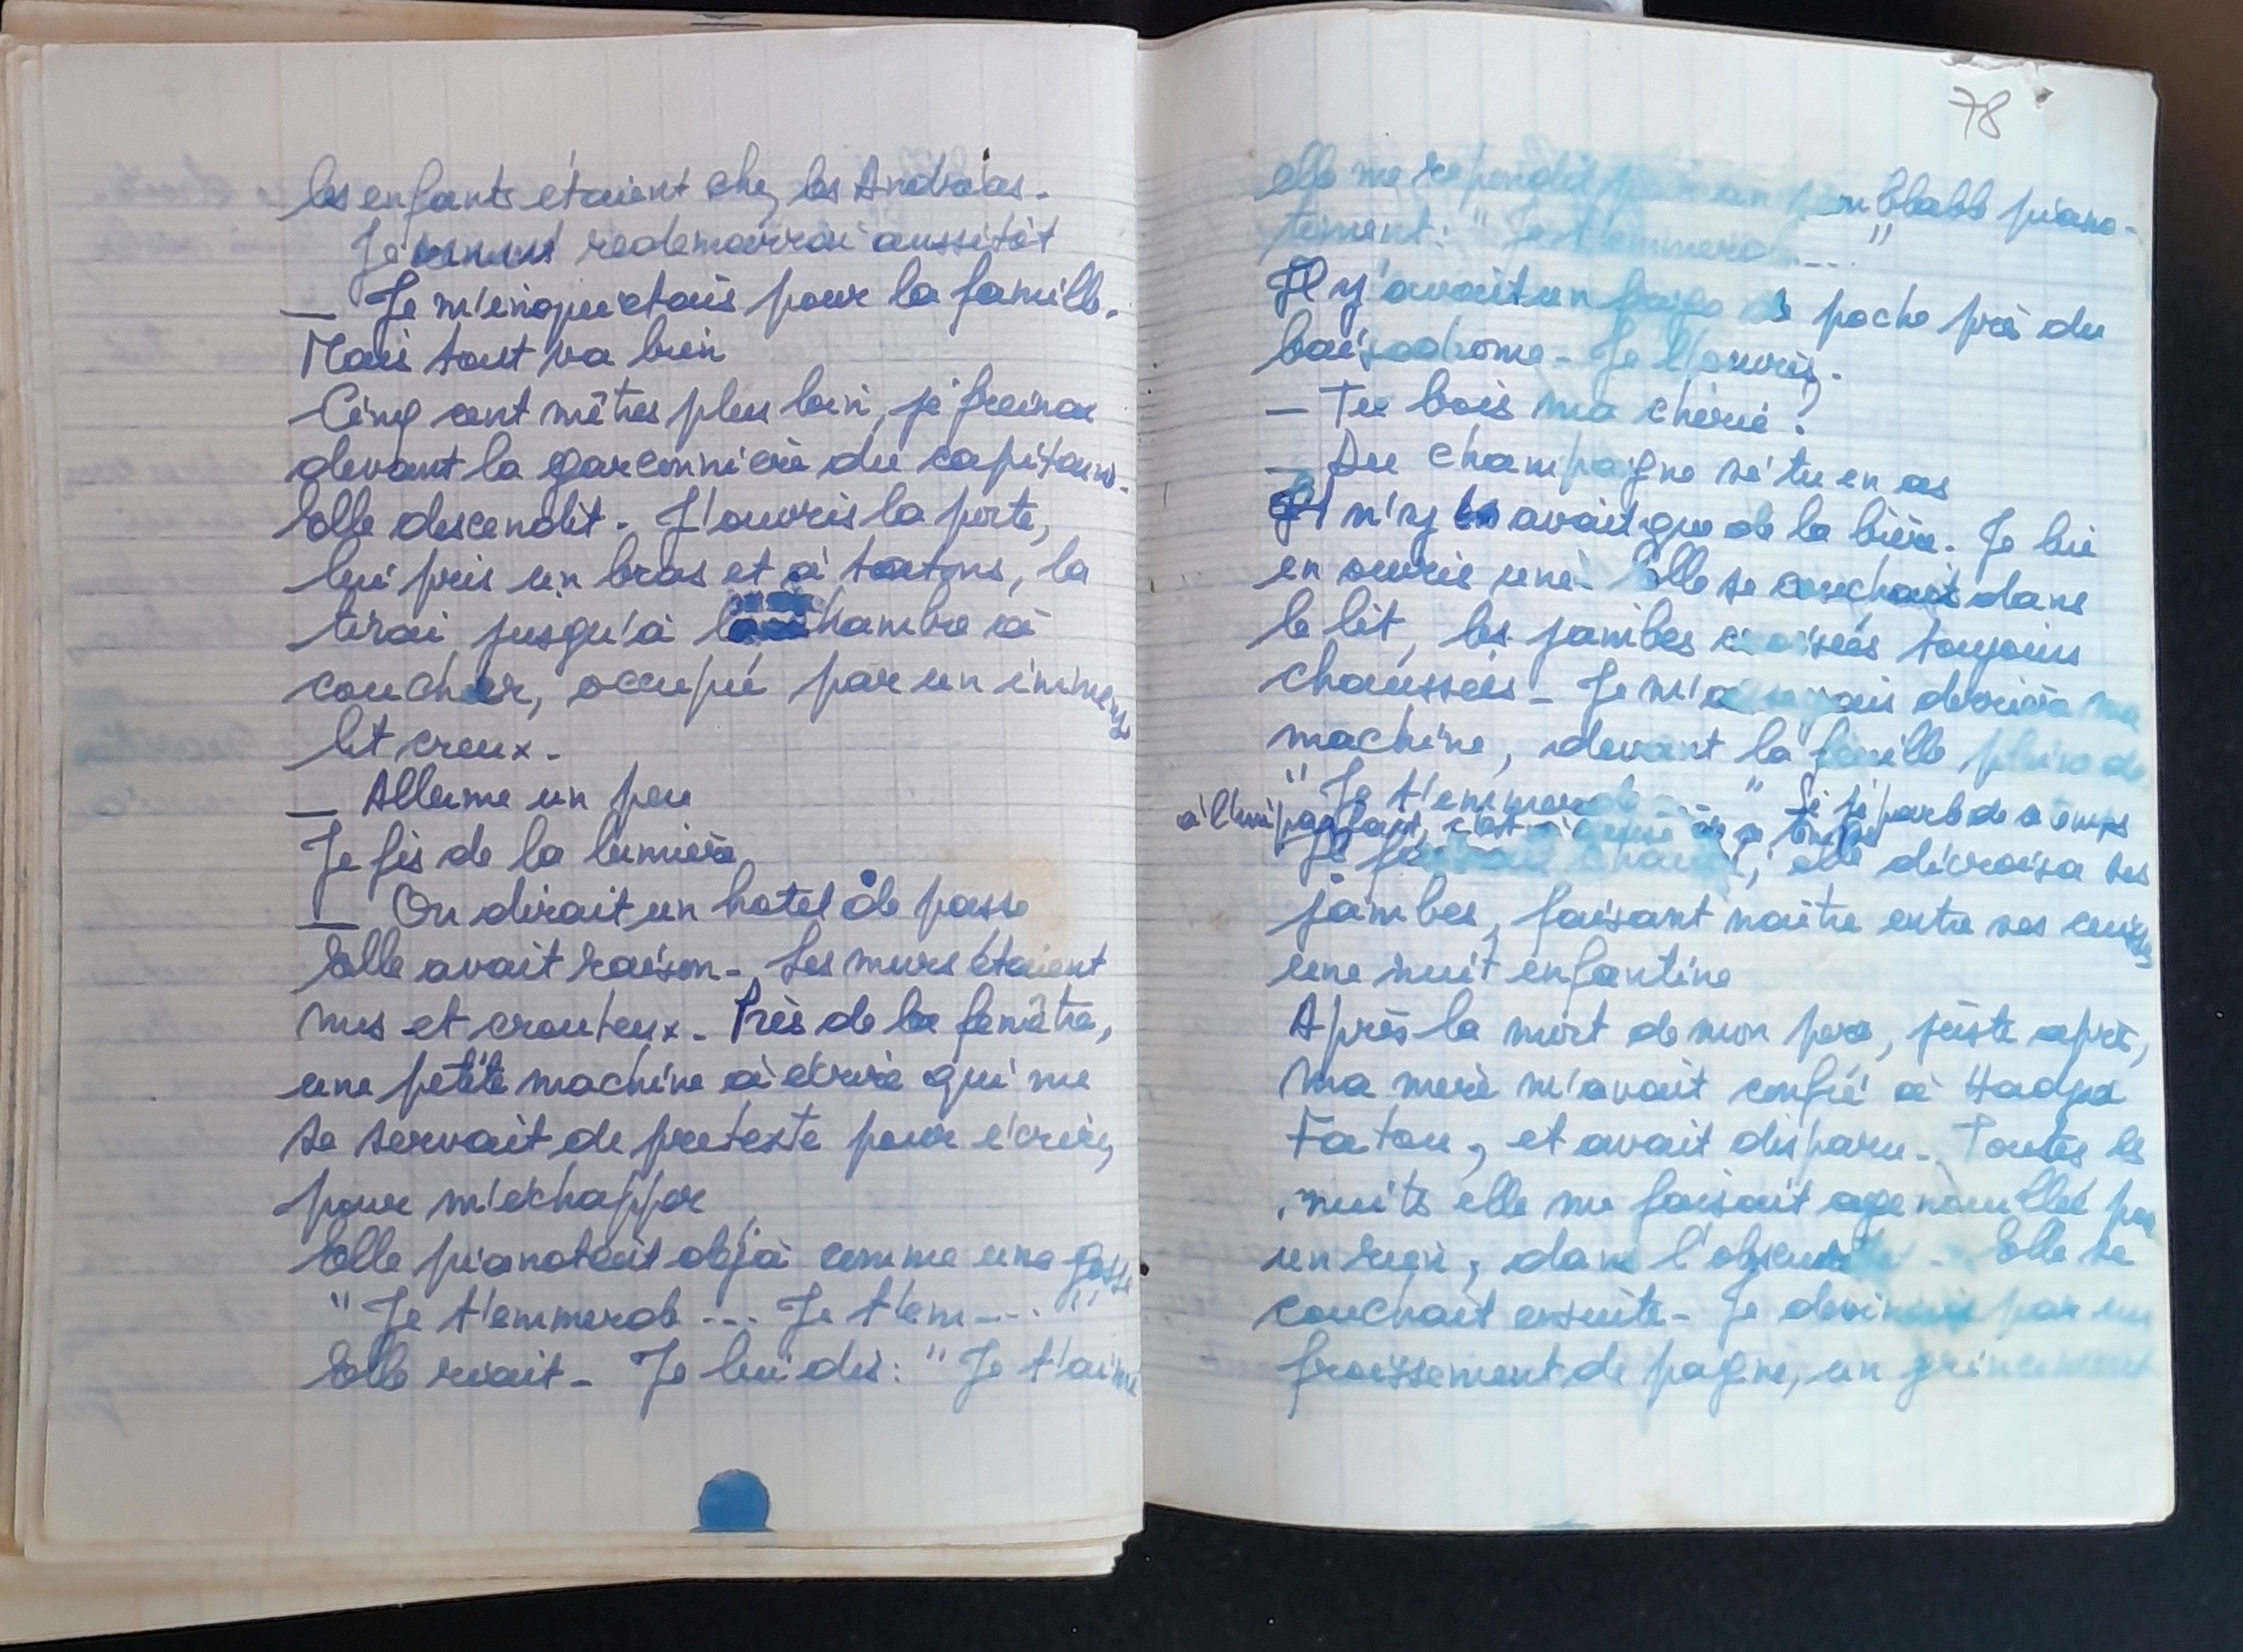 les enfants étaient chez les Andréas.
Je redemarrai aussitôt
— Je m'inquiétais pour la famille.
Mais tout va bien
Cinq cent mètres plus loin, je freinai
devant la garconnière du capitaine.
Elle descendit. J'ouvris la porte,
lui pris un bras et à tatons, la
tirai jusqu'à la chambre à
coucher, occupé par un immense
lit creux.
— Allume un peu
Je fis de la lumière
— On dirait un hotel de passe
Elle avait raison. Les murs étaient
nus et crouteux. Près de la fenêtre,
une petite machine à écrire qui me
servait de pretexte pour écrire,
pour m'échapper
Elle pianotait déjà comme une gosse
"Je t'emmerde ... Je t'em..."
Elle riait. Je lui dis : "Je t'aime
78
elle me repondit par un semblable piano-
tement : "Je t'emmerde ..."
Il y'avait un frigo de poche près du
baisodrome. Je l'ouvris.
— Tu bois ma chérie ?
— Du champaigne si tu en as
Il n'y avait que de la bière. Je lui
en ouvris une. Elle se couchait dans
le lit, les jambes croisées toujours
chaussées. Je m'asseyais derrière ma
machine, devant la feuille pleine de
"Je t'emmerde ..." Si je parle de temps
à l'imparfait, c'est
elle décroisa ses
jambes, faisant naître entre ses cuisses
une nuit enfantine
Après la mort de mon père, juste après,
ma mère m'avait confié à Hadja
Fatou, et avait disparu. Toutes les
nuits elle me faisait agenouiller pour
un rien, dans l'obscurité. Elle se
couchait ensuite. Je devinais par un
froissement de pagne, un grincement